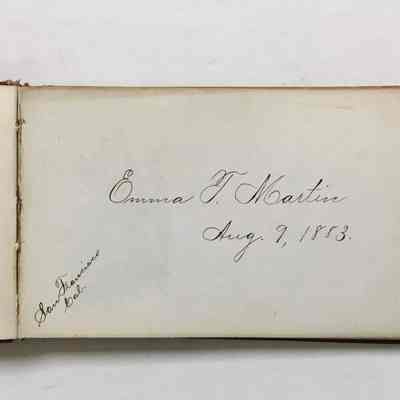 Emma T. Martin
Aug. 9, 1883.
San Francisco
Cal.